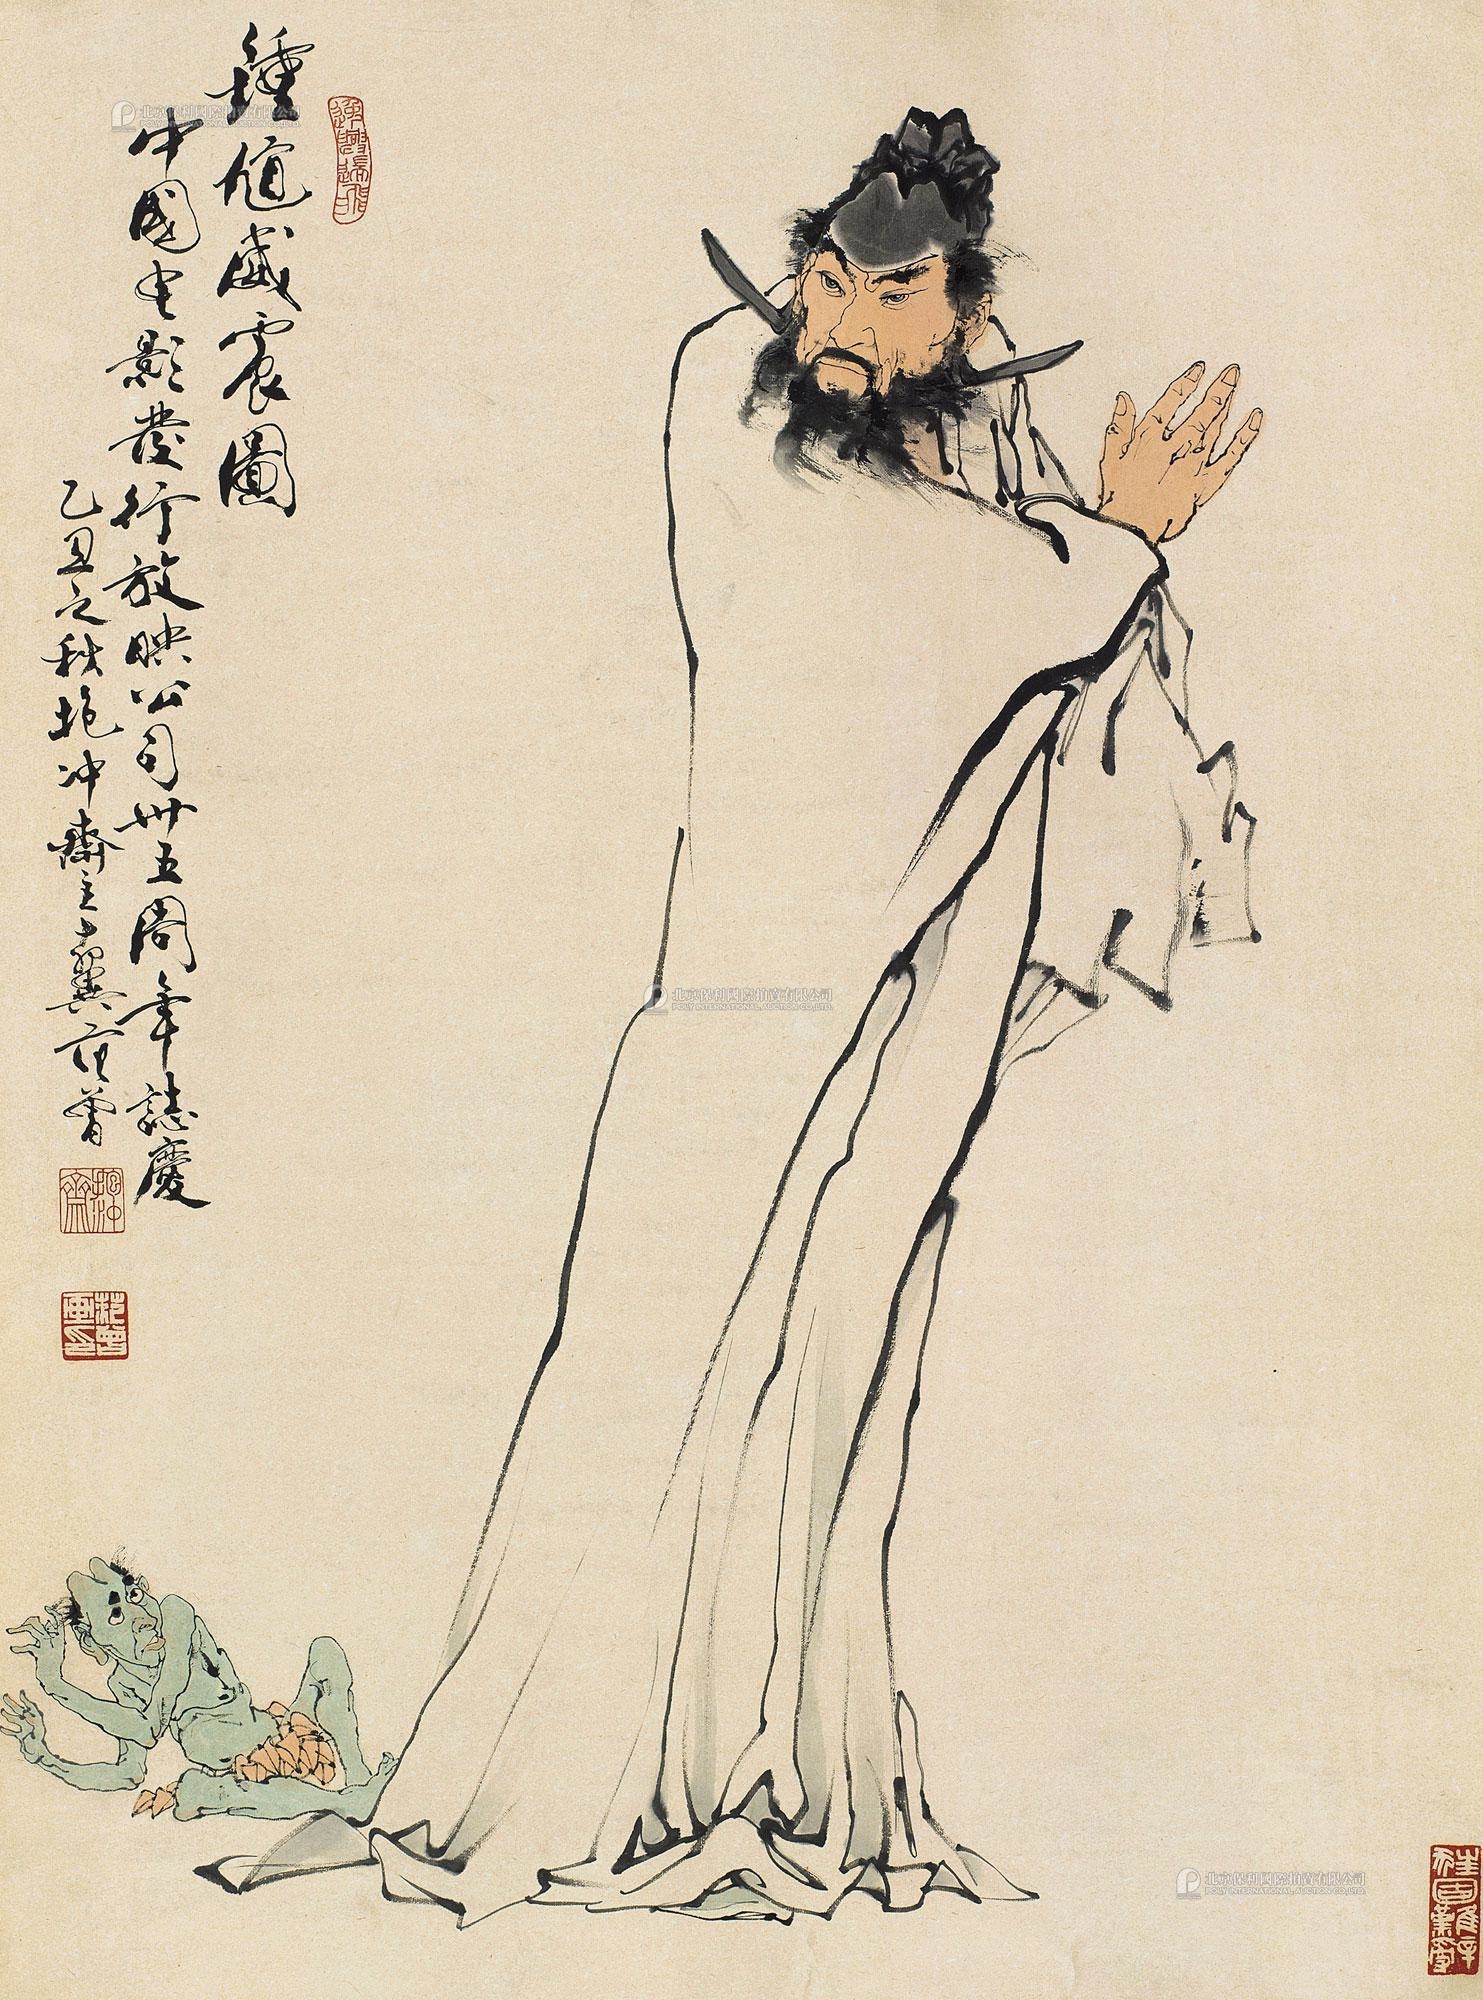 鍾馗威震圖
中國电影發行放映公司卅五周年誌慶
乙丑之秋抱冲齋主十翼范曾
抱冲齋
范曾畫印
北京保利國際拍賣有限公司
POLY INTERNATIONAL AUCTION CO.,LTD.
北京保利國際拍賣有限公司
POLY INTERNATIONAL AUCTION CO.,LTD.
北京保利國際拍賣有限公司
POLY INTERNATIONAL AUCTION CO.,LTD.